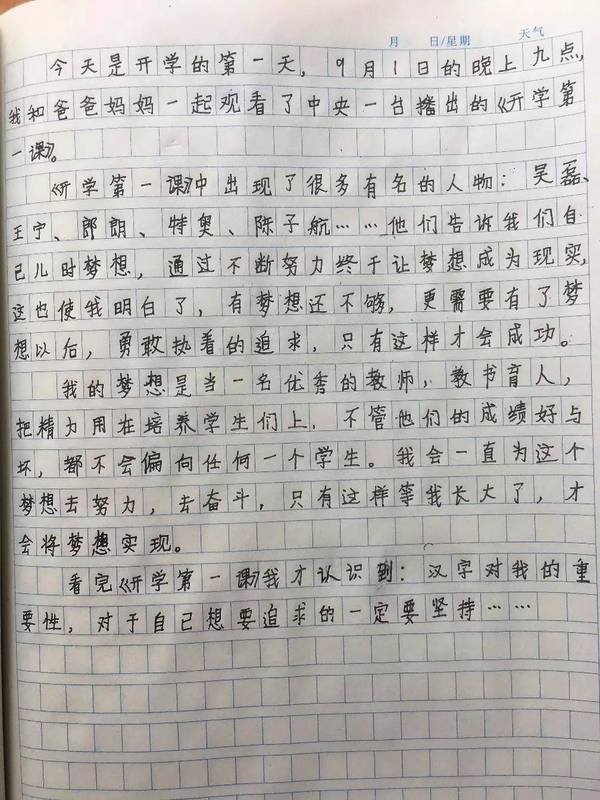 月 日/星期 天气
今天是开学的第一天,9月1日的晚上九点,
我和爸爸妈妈一起观看了中央一台播出的《开学第
一课》。
《开学第一课》中出现了很多有名的人物:吴磊、
王宁、郎朗、特奥、陈子航……他们告诉我们自
己儿时梦想,通过不断努力终于让梦想成为现实,
这也使我明白了,有梦想还不够,更需要有了梦
想以后,勇敢执着的追求,只有这样才会成功。
我的梦想是当一名优秀的教师,教书育人,
把精力用在培养学生们上,不管他们的成绩好与
坏,都不会偏向任何一个学生。我会一直为这个
梦想去努力,去奋斗,只有这样等我长大了,才
会将梦想实现。
看完《开学第一课》我才认识到:汉字对我的重
要性,对于自己想要追求的一定要坚持……